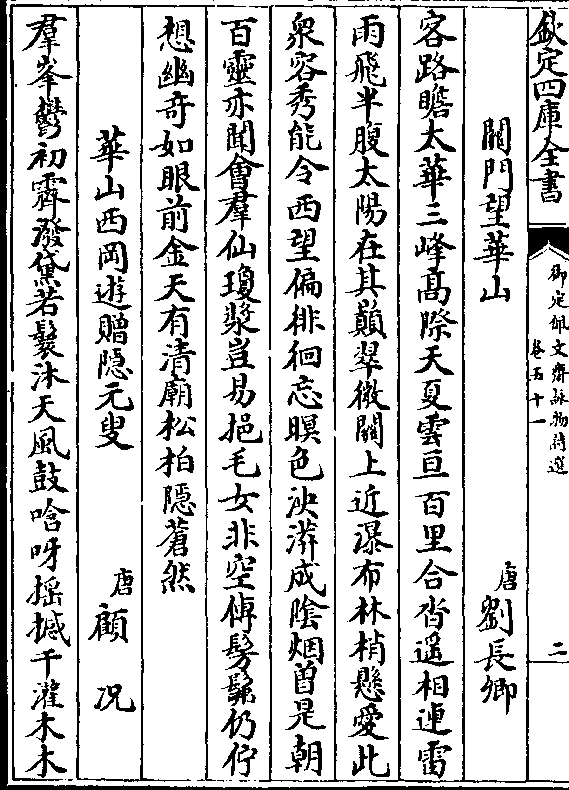 欽定四庫全書
御定佩文齋詠物詩選
卷五十一
二
關門望華山
唐劉長卿
客路瞻太華三峰高際天夏雲亘百里合沓遥相連雷
雨飛半腹太陽在其巔翠微關上近瀑布林梢懸愛此
衆容秀能令西望偏徘徊忘暝色泱漭成陰烟曽是朝
百靈亦聞會羣仙瓊漿豈易挹毛女非空傳髣髴仍佇
想幽奇如眼前金天有清廟松柏隠蒼然
華山西岡逰贈隠元叟
唐顧况
羣峯鬱初霽潑黛若鬟沐天風鼓唅呀揺撼千灌木木